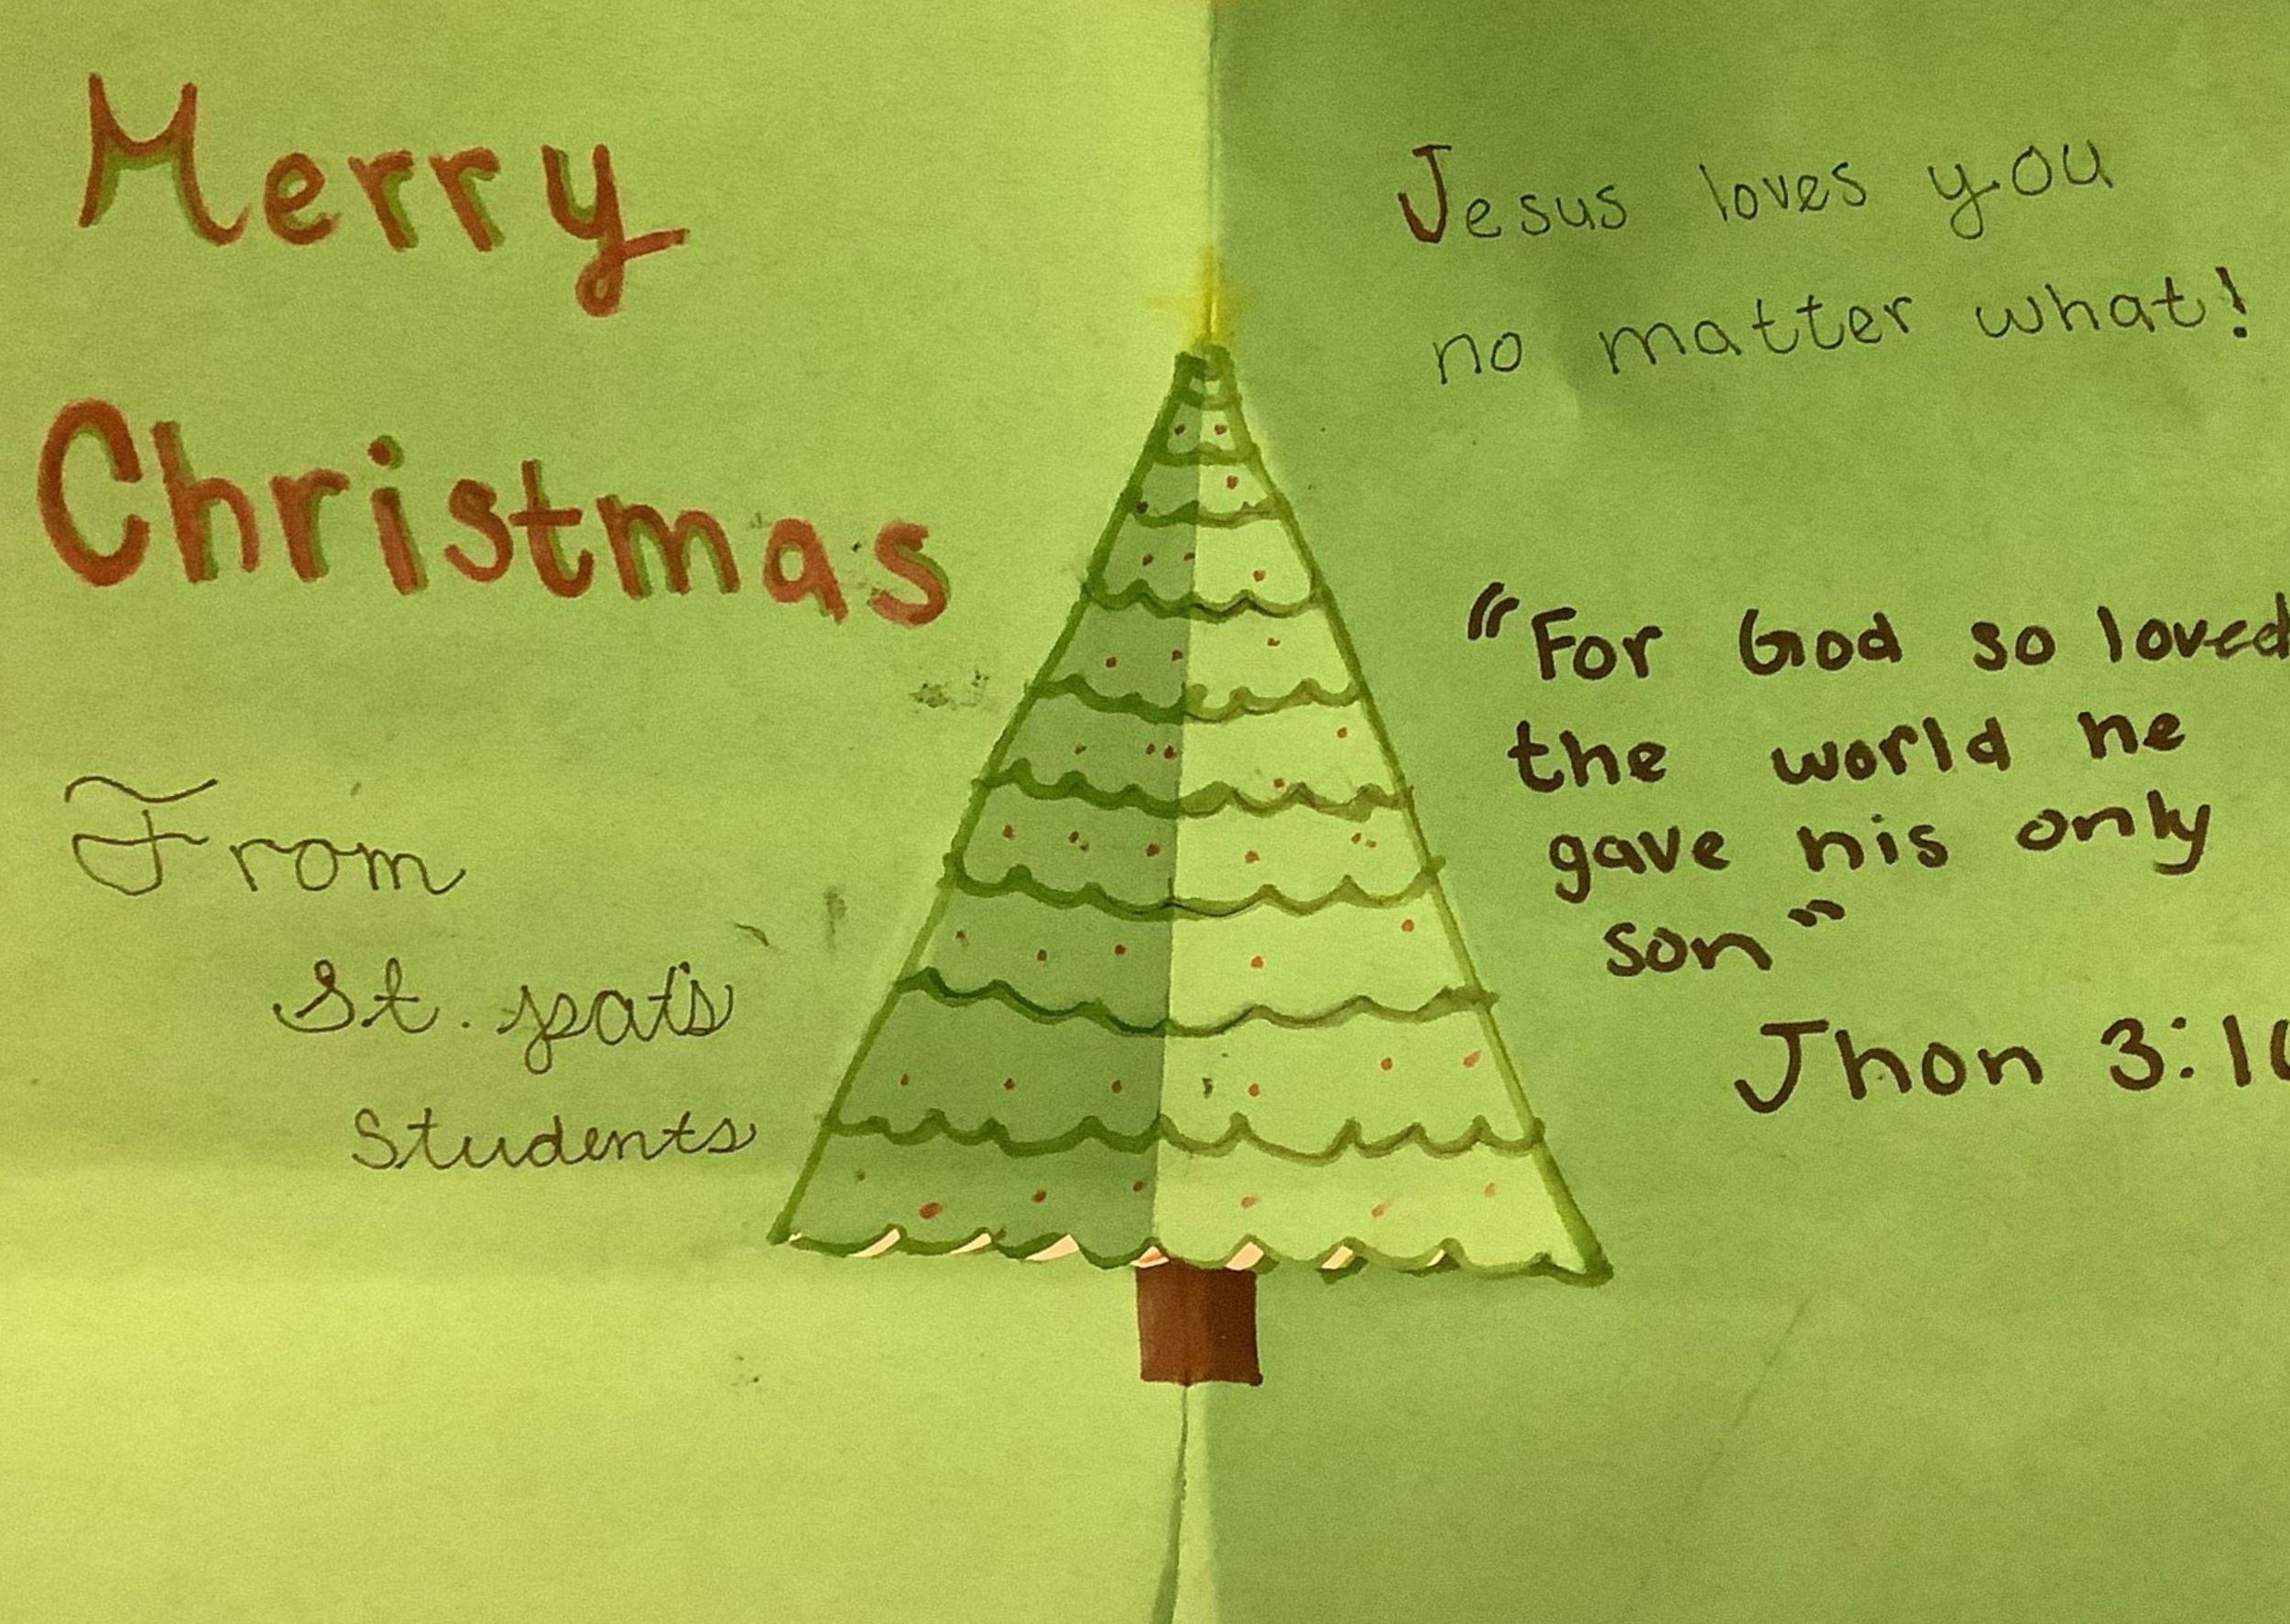 Merry
Christmas
From
St. pat's
Students
Jesus loves you
no matter what!
"For God so loved
the world he
gave his only
son"
Jhon 3:1